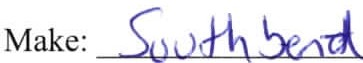 Make: Southbend